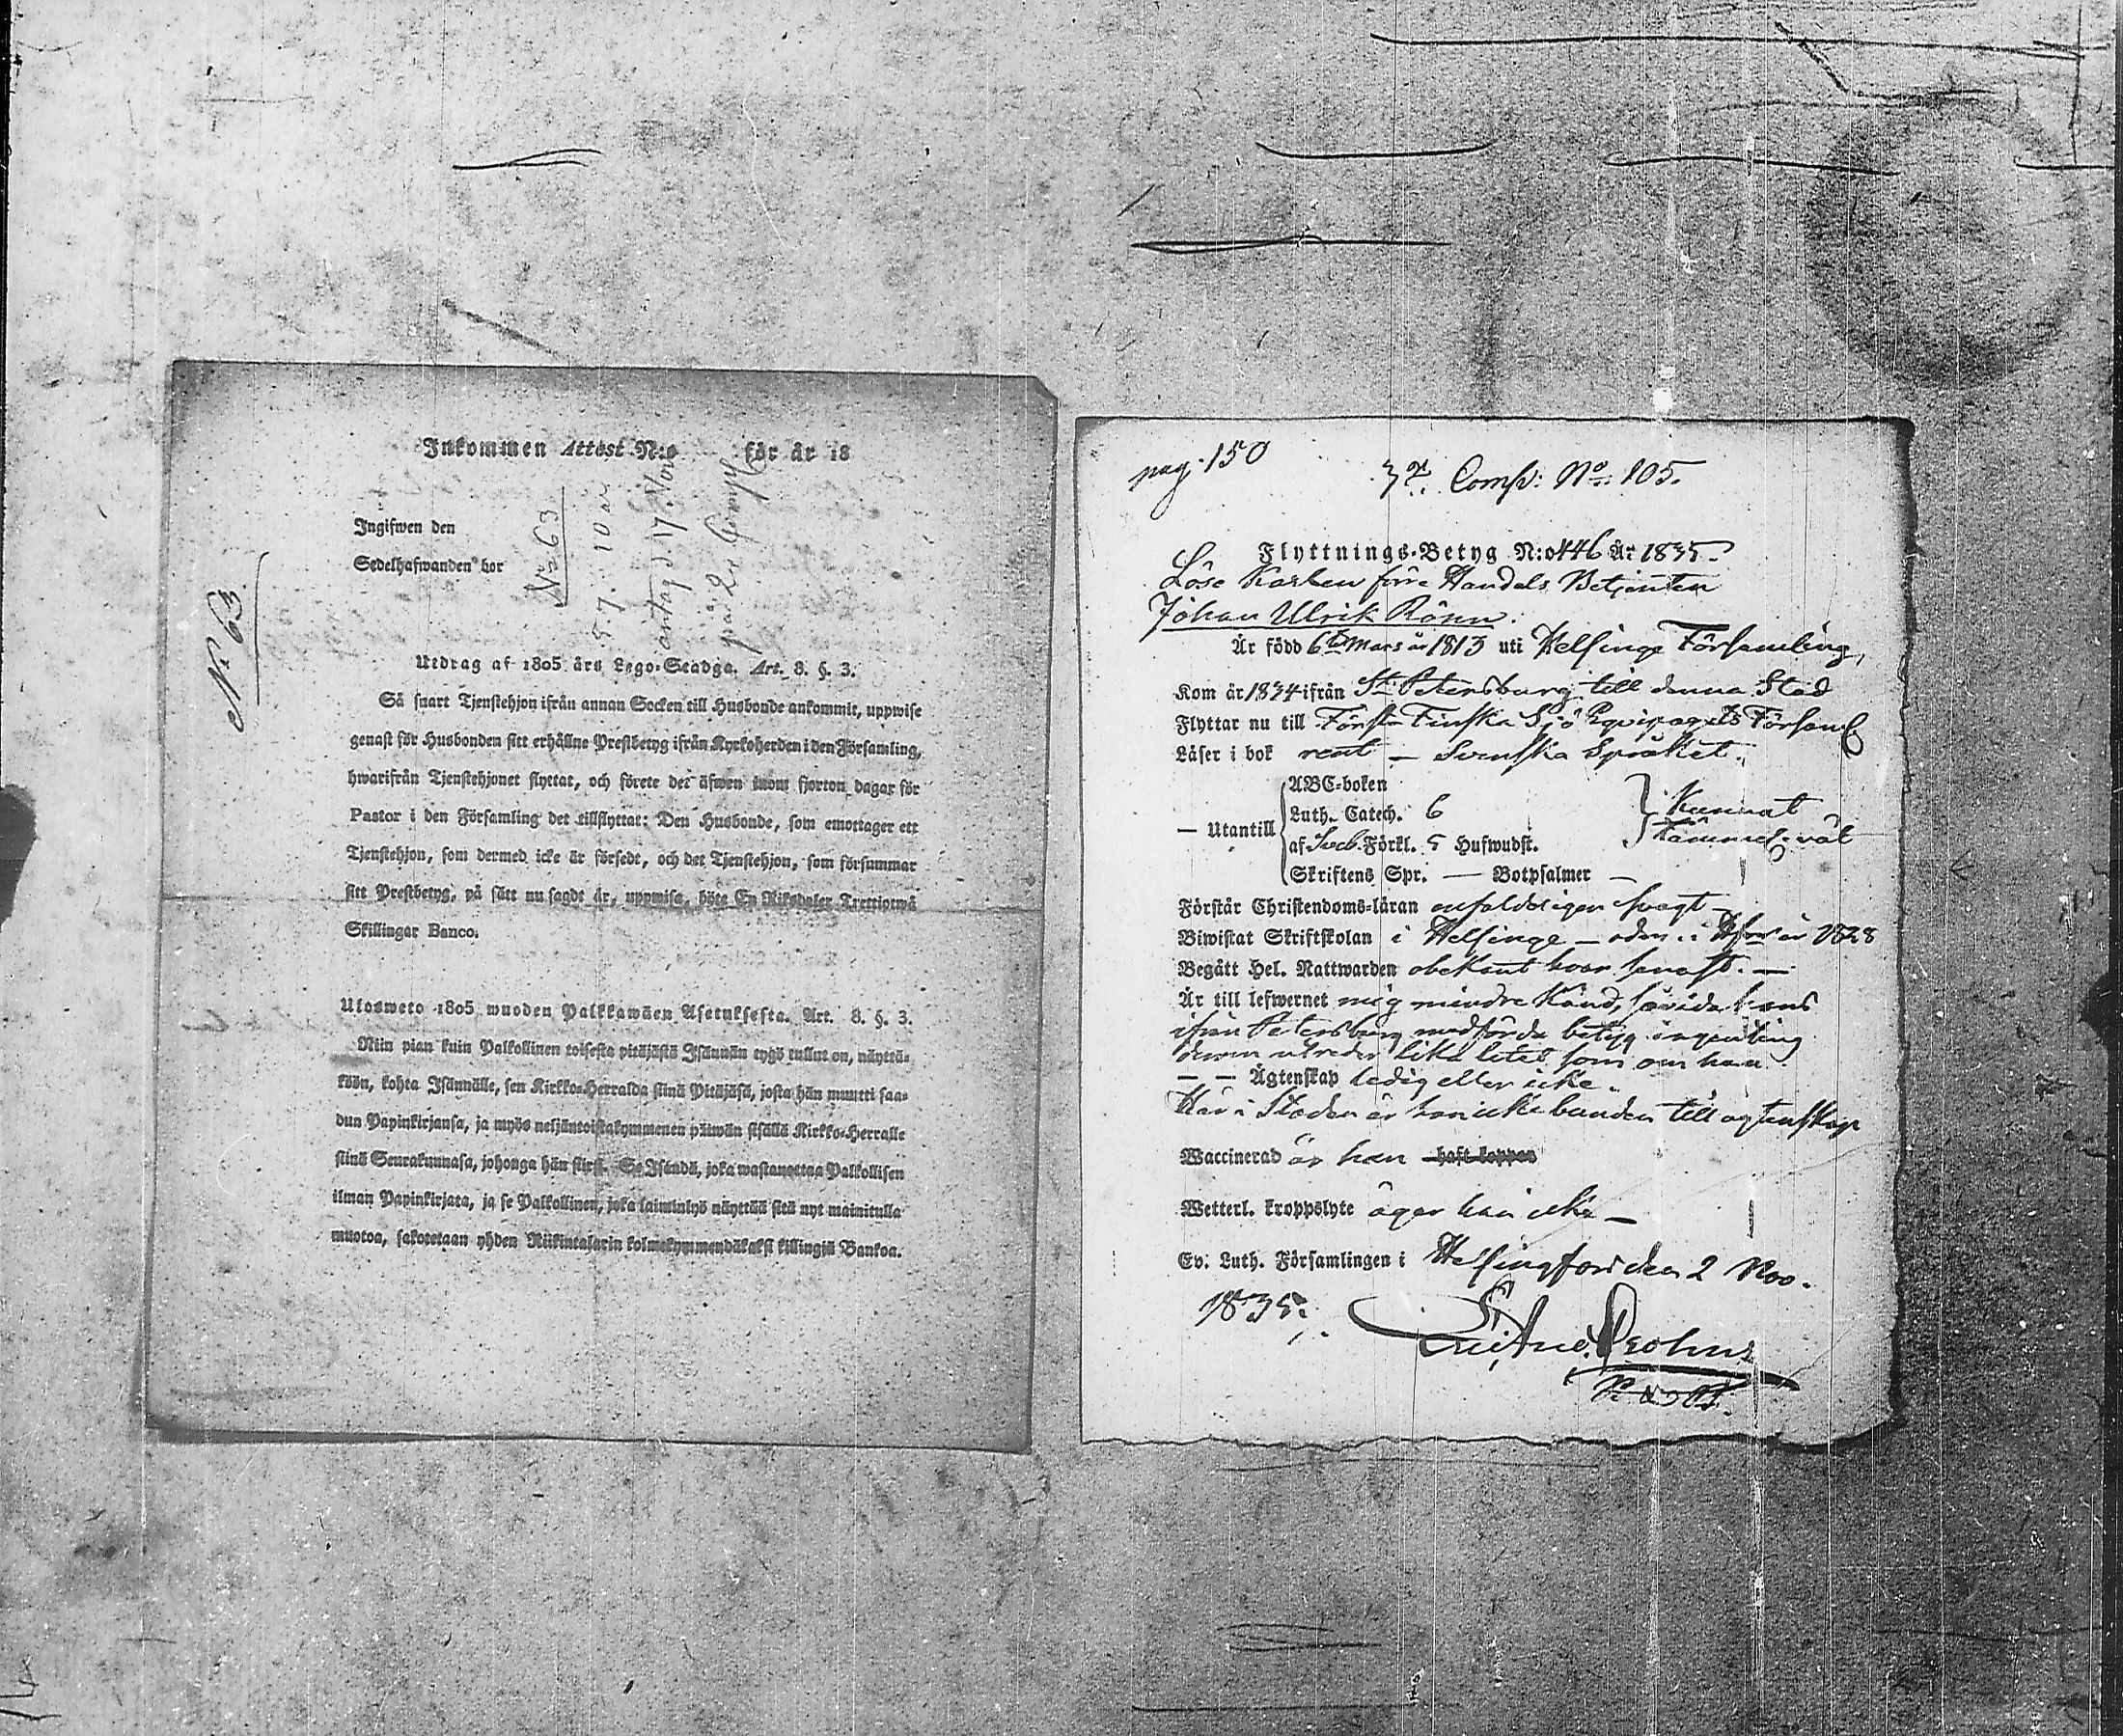 Inkommen Attest N:o för år 18
Ingifwen den
Sedelhafwanden bor
N:o 63
5. 7. 10 
antag d 17 Nov
på 2 Comp
N. 63
Utdrag af 1805 års Lego-Stadga. Art. 8. §. 3.
Så snart Tjenstehjon ifrån annan Socken till Husbonde ankommit, uppwise
genast för Husbonden sitt erhållne Prestbetyg ifrån Kyrkoherden i den Församling,
hwarifrån Tjenstehjonet flyttat, och förete det äfwen inom fjorton dagar för
Pastor i den Församling det tillflyttat: Den Husbonde, som emottager ett
Tjenstehjon, som dermed icke är försedt, och det Tjenstehjon, som försummar
sitt Prestbetyg, på sätt nu sagdt är, uppwisa, böte En Riksdaler Trettiotwå
Skillingar Banco.
Ulosweto 1805 wuoden Palkkawäen Asetuksesta. Art. 8. §. 3.
Niin pian kuin Palkollinen toisesta pitäjästä Isännän tygö tullut on, näyttä-
köön, kohta Isännälle, sen Kirkko-Herralda siinä Pitäjäsä, josta hän muutti saa-
dun Papinkirjansa, ja myös neljäntoistakymmenen päiwän sisällä Kirkko-Herralle
siinä Seurakunnasa, johonga hän siirsi. Se Isändä, joka wastanottaa Palkollisen
ilman Papinkirjata, ja se Palkollinen, joka laiminlyö näyttää sitä nyt mainitulla
muotoa, sakotetaan yhden Riikintalarin kolmekymmendäkaksi killingiä Bankoa.
pag. 150
Comp: No: 105.
Flyttnings-Betyg N:o 446 År 1835
Löse Karlen förre Handels Betjenten
Johan Ulrik Rönn.
Är född 6te Mars år 1813 uti Helsinge Församling,
Kom år 1834 ifrån St Petersburg till denna Stad
Flyttar nu till Första Finska Sjö Equipagets Församl
Läser i bok rent – Svenska Språket.
ABC-boken
Luth. Catech. 6
— Utantill
af Sveb. Förkl. 5 Hufwudst.
Kunnat
wäl
Skriftens Spr. — Botpsalmer —
Förstår Christendoms-läran enfaldeligen svagt
Biwistat Skriftskolan i Helsinge — år 1828
Begått Hel. Nattwarden obekant hvar senast. —
Är till lefwernet mig mindre känd, såvida hans
ifrån Petersburg medförde betyg ingenting
derom utreder lika litet som om han
— — Ägtenskap ledig eller icke.
Här i Staden är han icke bunden till ägtenskap
Waccinerad är han haft koppor
Wetterl. kroppslyte äger han icke —
Ev: Luth. Församlingen i Helsingfors den 2 Nov.
1835.